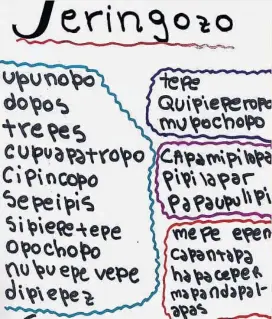 Jeringozo
upunopo
dopos
trepes
cupuapatropo
Cipincopo
Sepeipis
Sipiepetepe
opochopo
nupuepevepe
dipiepez
tepe
Quipieperopo
mupochopo
CApamipilapa
pipilapar
papaupulipi
mepe epen
capantapa
hapaceper
mapandapal-
apas